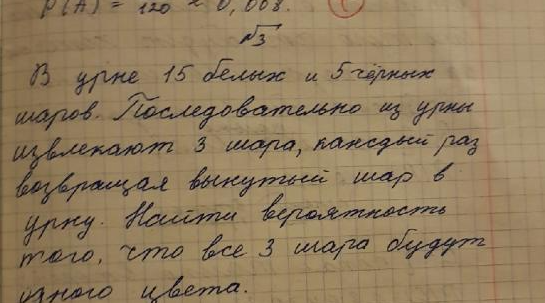 P(A) = 120 ≈ 0,008.
№3
В урне 15 белых и 5 чёрных
шаров. Последовательно из урны
извлекают 3 шара, каждый раз
возвращая вынутый шар в
урну. Найти вероятность
того, что все 3 шара будут
одного цвета.